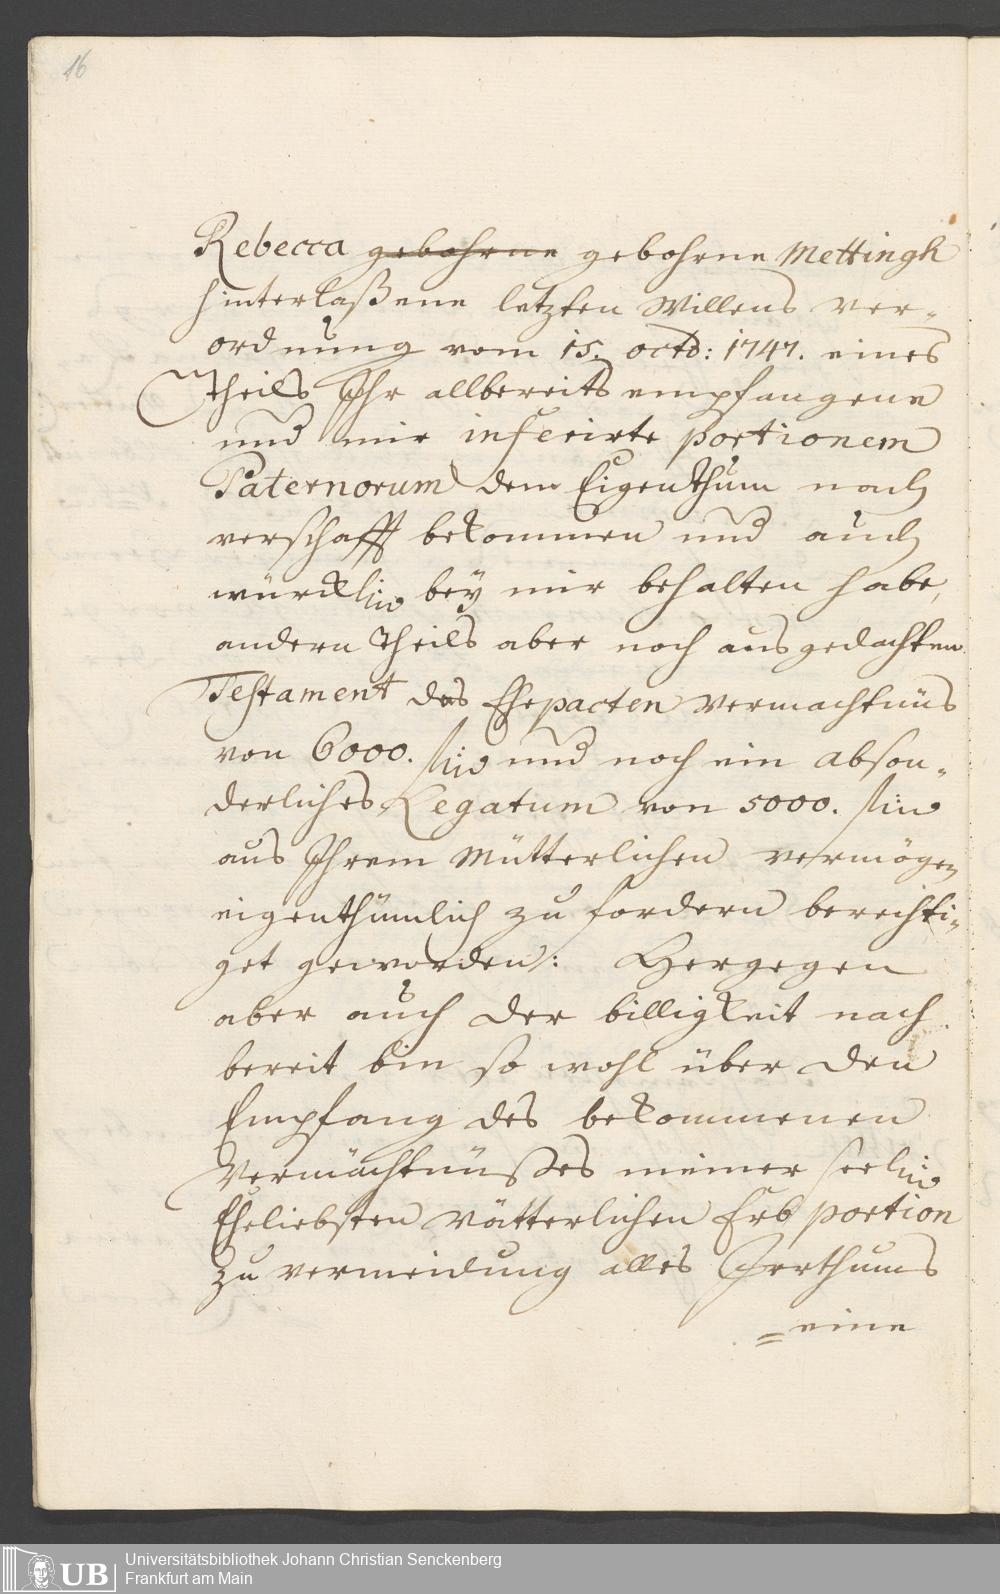 16
Rebecca gebohrne gebohrne Mettingh
hinterlaßene letzten Willens Ver-
ordnung vom 15. octb: 1747. eines
Theils Ihr allbereits empfangene
und mir inferirte portionem
Paternorum dem Eigenthum nach
verschafft bekommen und auch
würcklich bey mir behalten habe,
andern Theils aber noch aus gedachten
Testament das Ehepacten Vermachtnüs
von 6000. und noch ein abson-
derliches Legatum von 5000.
aus Ihrem Mütterlichen vermögen
eigenthümlich zu fordern berechti-
get geworden: Hergegen
aber auch der billigkeit nach
bereit bin so wohl über den
Empfang des bekommenen
Vermächtnüßes meiner seel.
Eheliebsten Vätterlichen Erb portion
zu vermeidung alles Irrthums
= eine
UB
Universitätsbibliothek Johann Christian Senckenberg
Frankfurt am Main